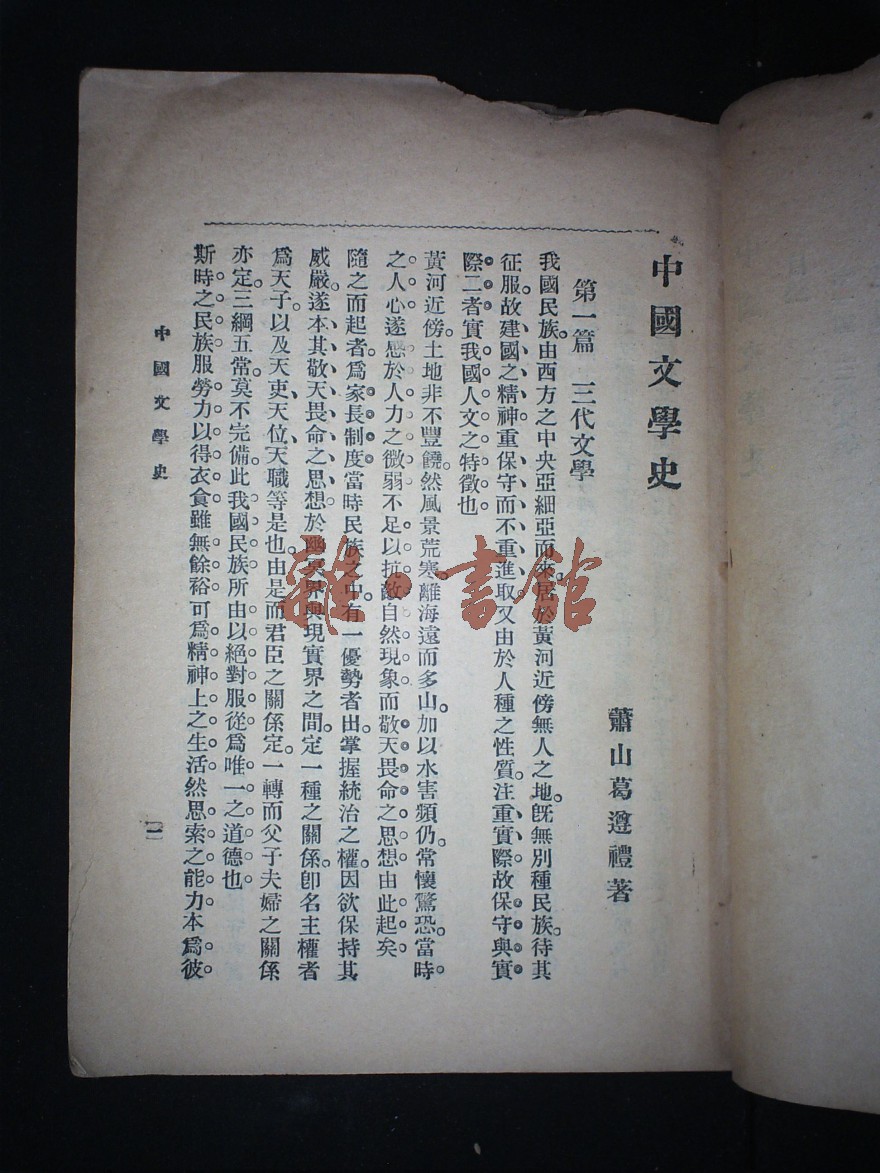 中國文學史
蕭山葛遵禮著
第一篇　三代文學
我國民族。由西方之中央亞細亞而來。居於黃河近傍無人之地。旣無別種民族。待其
征服。故建國之精神。重保守而不重進取。又由於人種之性質。注重實際。故保守與實
際二者。實我國人文之特徵也
黃河近傍。土地非不豐饒。然風景荒寒。離海遠而多山。加以水害頻仍。常懷驚恐。當時
之人心。遂感於人力之微弱。不足以抗敵自然現象。而敬天畏命之思想。由此起矣
隨之而起者。爲家長制度。當時民族之中。有一優勢者出。掌握統治之權。因欲保持其
威嚴。遂本其敬天畏命之思想。於幽冥界與現實界之間。定一種之關係。卽名主權者
爲天子。以及天吏、天位、天職等是也。由是而君臣之關係定。一轉而父子夫婦之關係
亦定。三綱五常。莫不完備。此我國民族所由以絕對服從爲唯一之道德也
斯時之民族。服勞力以得衣食。雖無餘裕可爲精神上之生活。然思索之能力。本爲彼
中國文學史
一
雜·書館